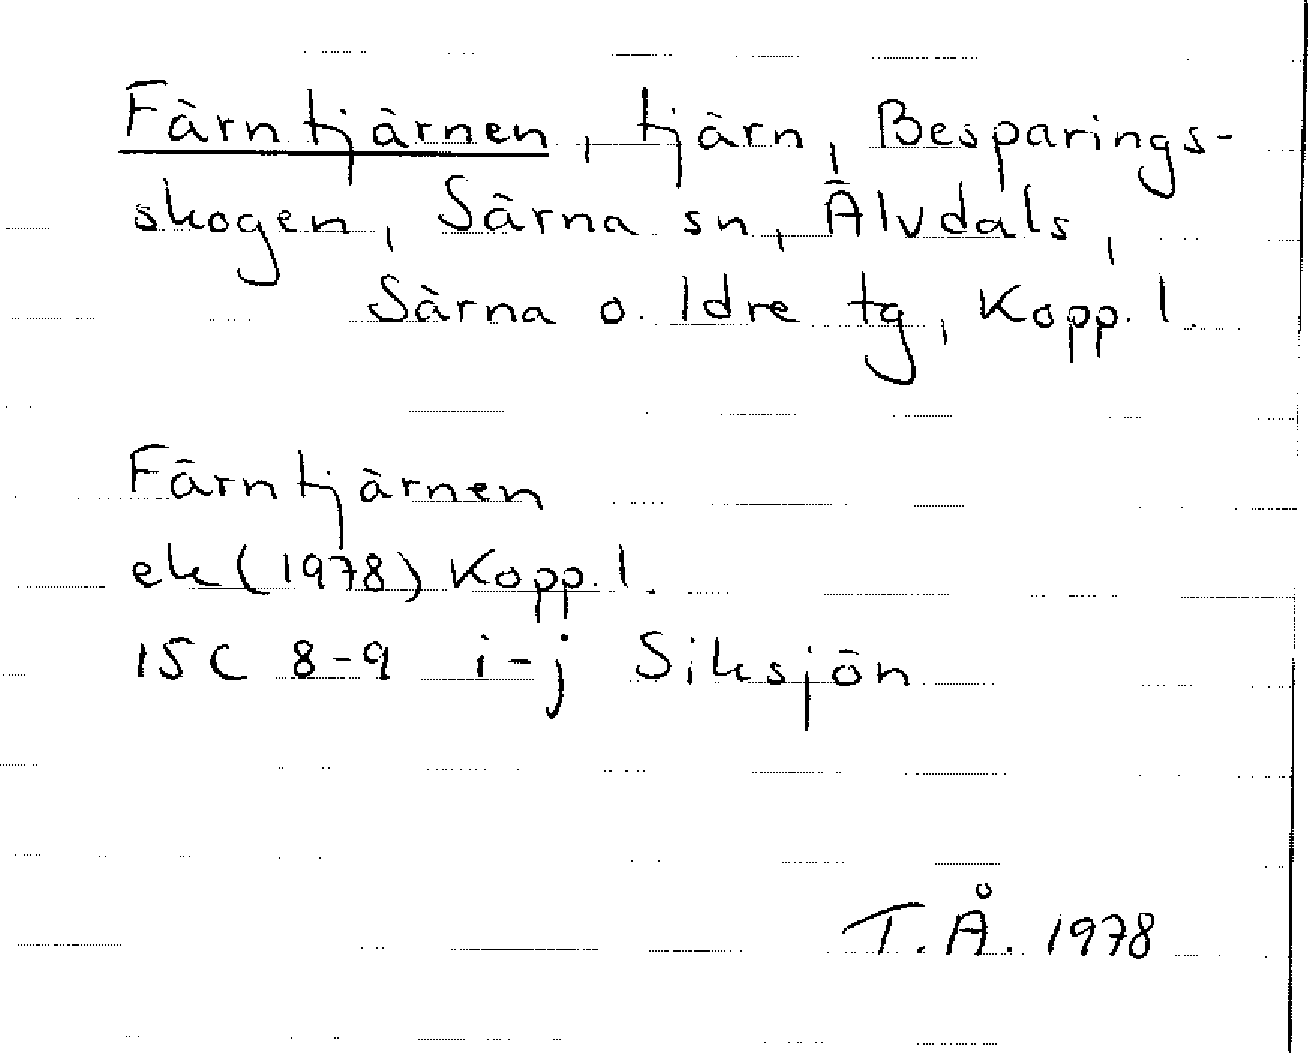 Färntjärnen, tjärn, Besparings-
skogen, Särna sn, Älvdals,
Särna o. Idre tg, Kopp. l.
Färntjärnen
ek (1978) Kopp. l.
15C 8-9 i-j Siksjön
T.Å. 1978